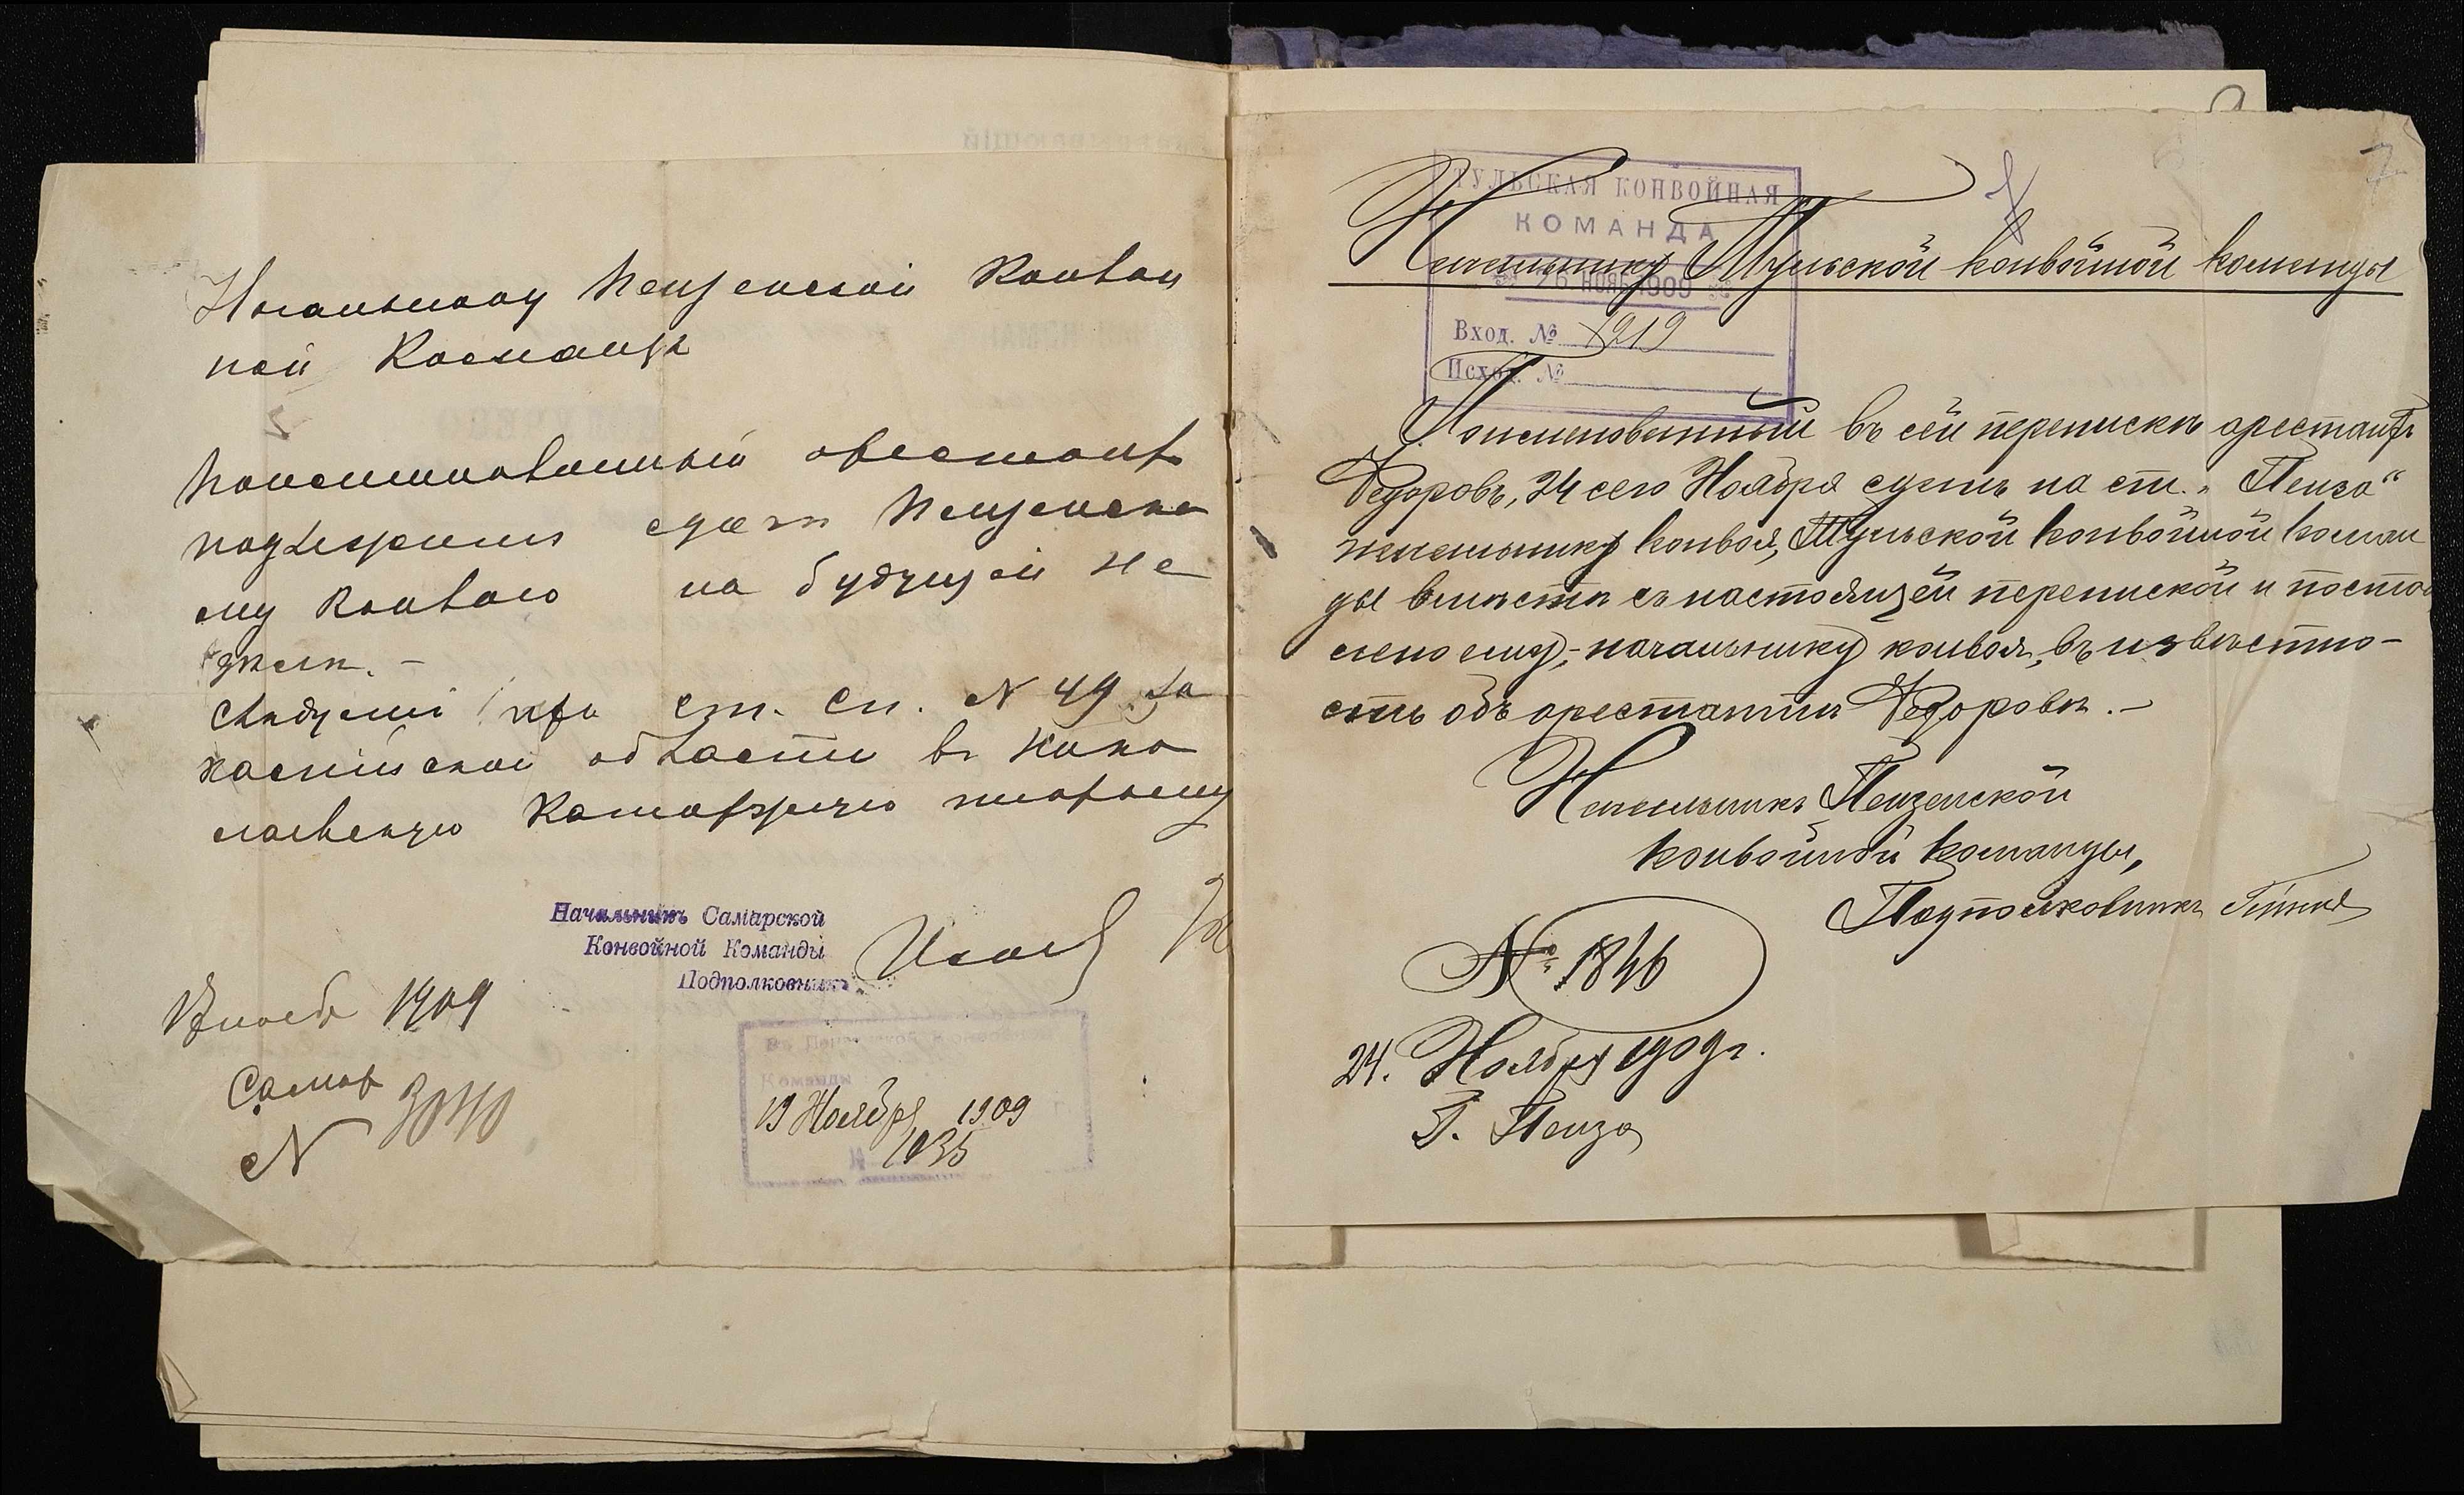 Начальнику Пензенской Конвой
ной Команды
Поименованный арестант
подлежит сдаче Пензенско
му Конвою на будущей не
дѣлѣ. –
Слѣдует при ст. сп. N 49 За
каспийской области въ Нико
лаевскую Каторжную тюрьму
Начальникъ Самарской
Конвойной Команды
Подполковникъ
нояб 1909
Самар
N 3040
Команды
19 Ноября 1909
1035
7
ТУЛЬСКАЯ КОНВОЙНАЯ
КОМАНДА
26 НОЯБ 1909
Вход. № 1219
Исход. №
Начальнику Тульской конвойной команды
Поименованный въ сей перепискѣ арестантъ
Федоровъ, 24 сего Ноября сданъ на ст. „Пенза“
начальнику конвоя, Тульской конвойной коман
ды вмѣстѣ съ настоящей перепиской и постав
лено ему, – начальнику конвоя, въ извѣстно-
сть объ арестантѣ Федоровѣ. –
Начальникъ Пензенской
конвойной команды,
Подполковникъ
№ 1846
24. Ноября 1909 г.
Г. Пенза